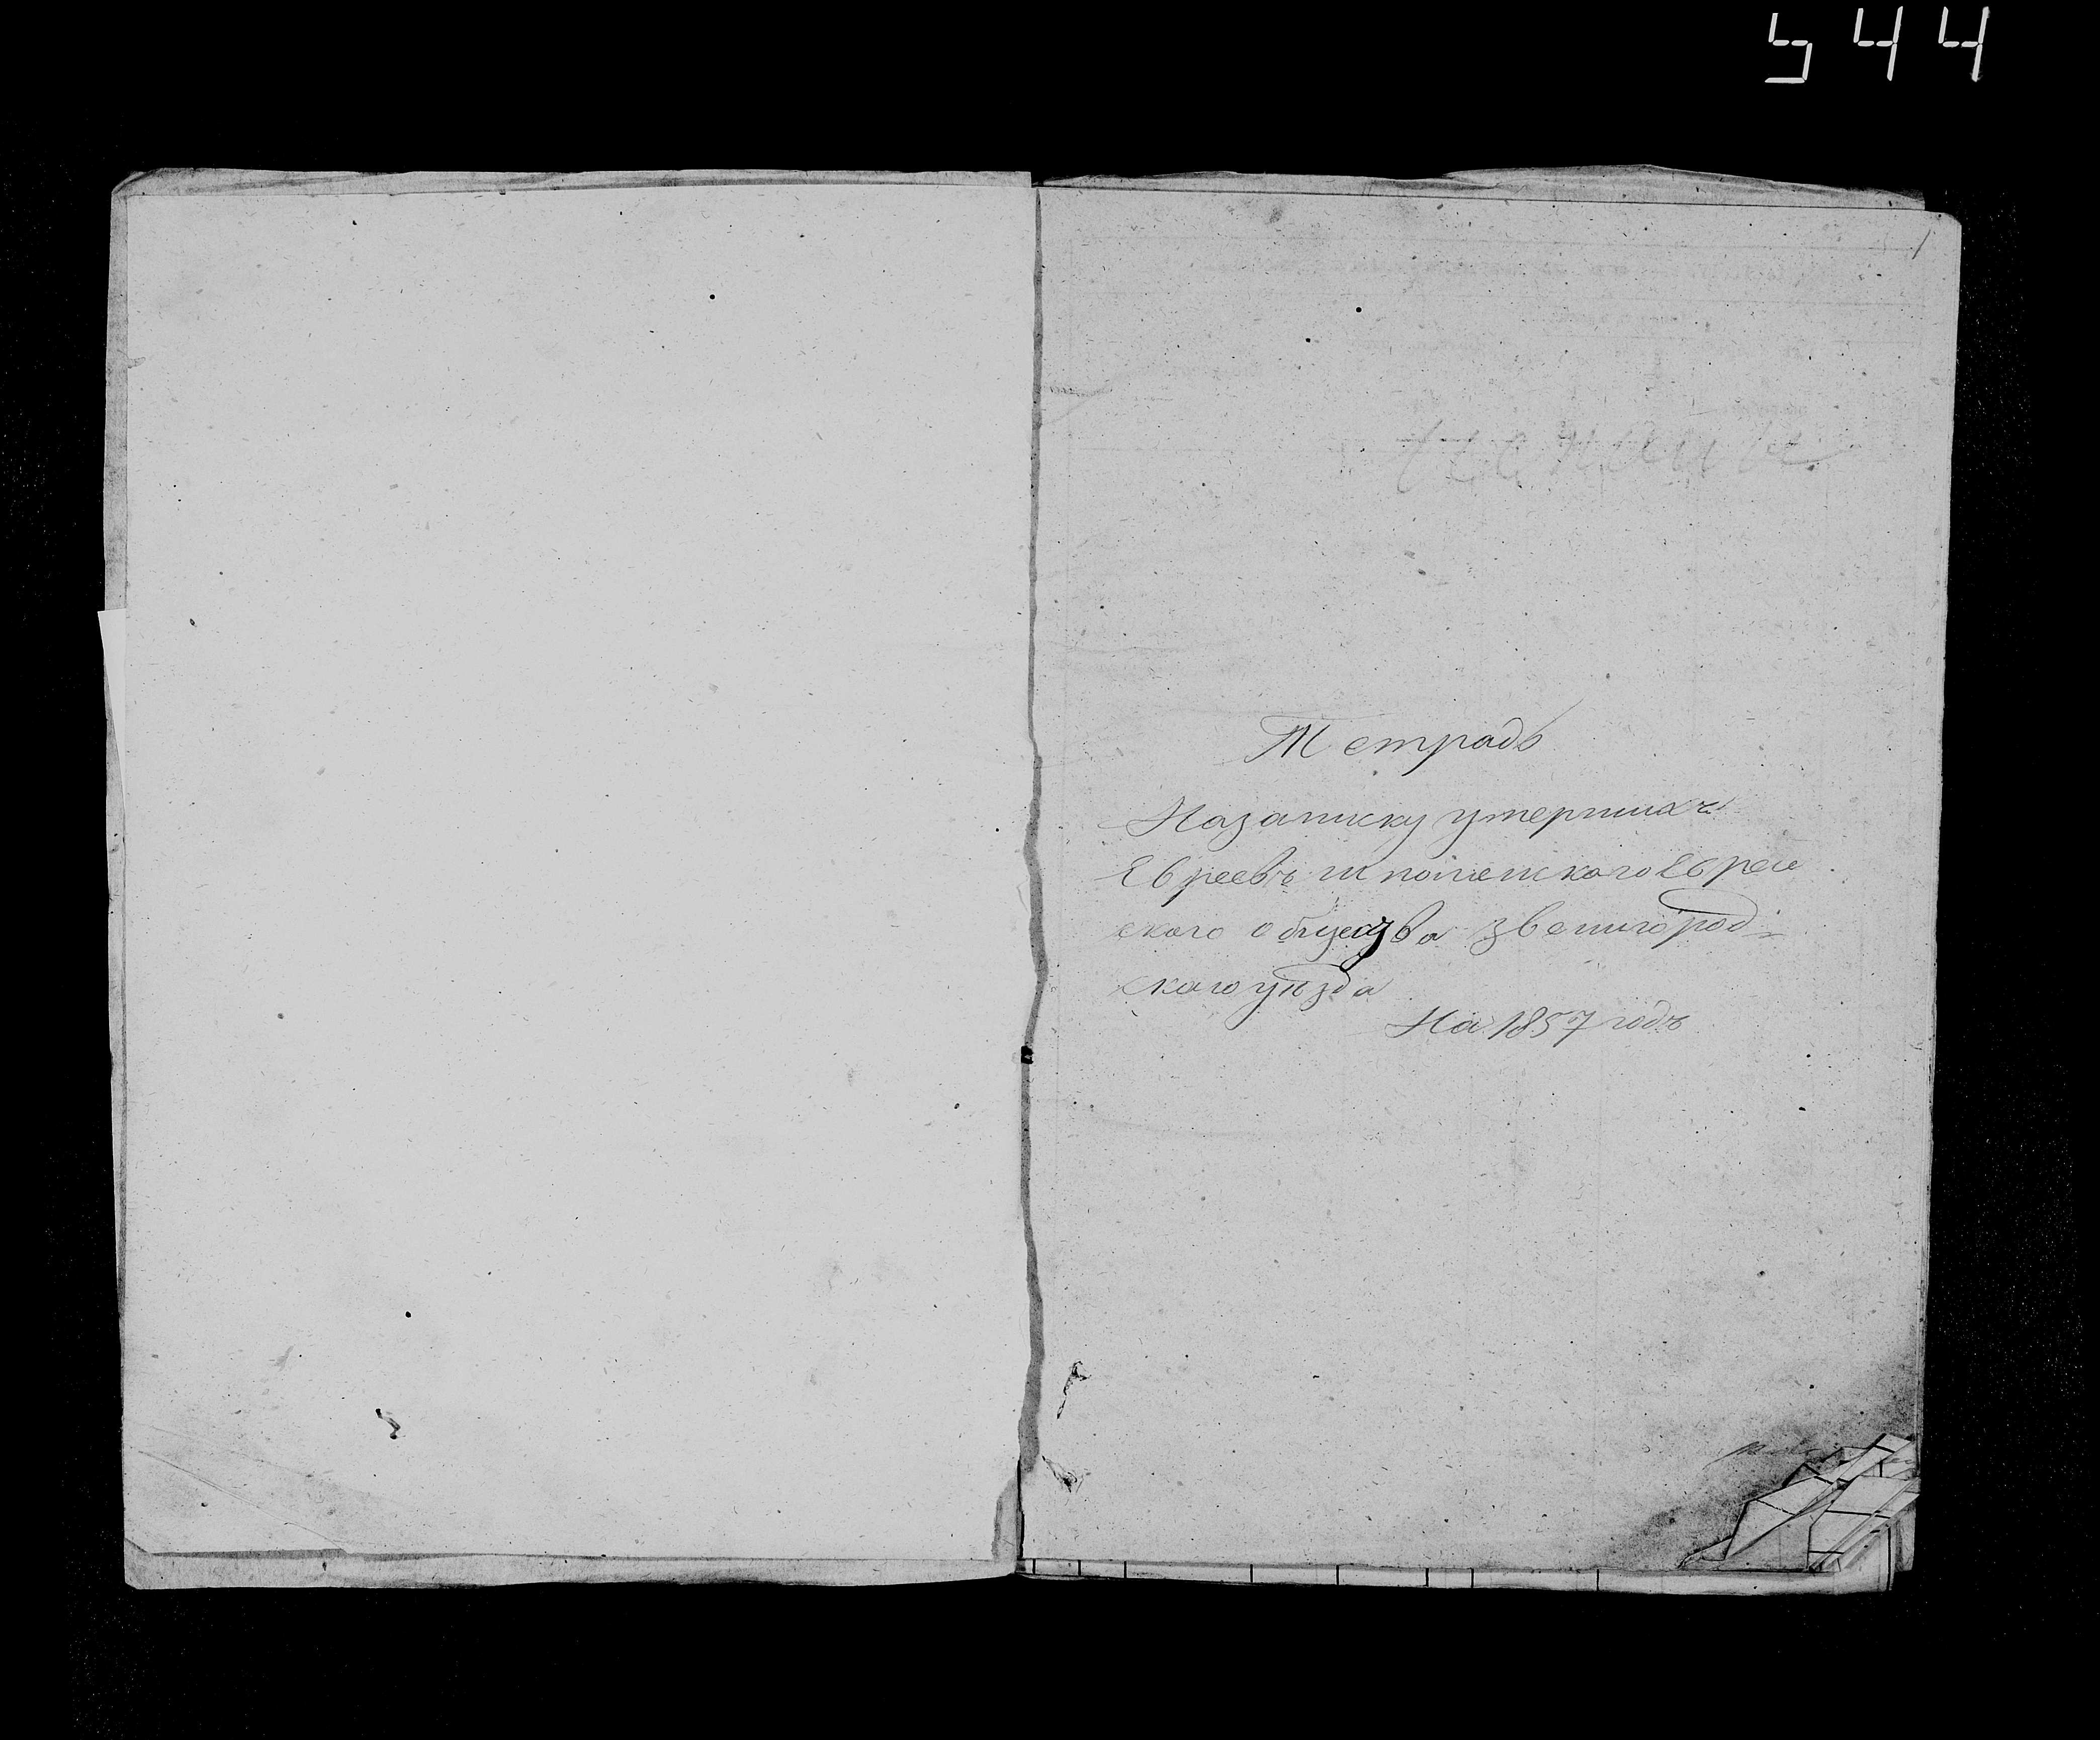 544
1
Тетрадь
Назаписку умершихъ
Евреевъ шполянского Еврей
ского общества звенигород=
ского уѣзда
На 1857 годъ